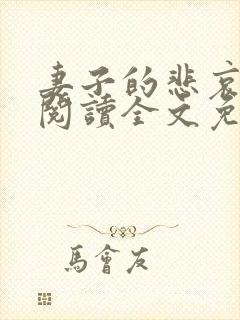 妻子的悲哀
閱讀全文免
馬會友